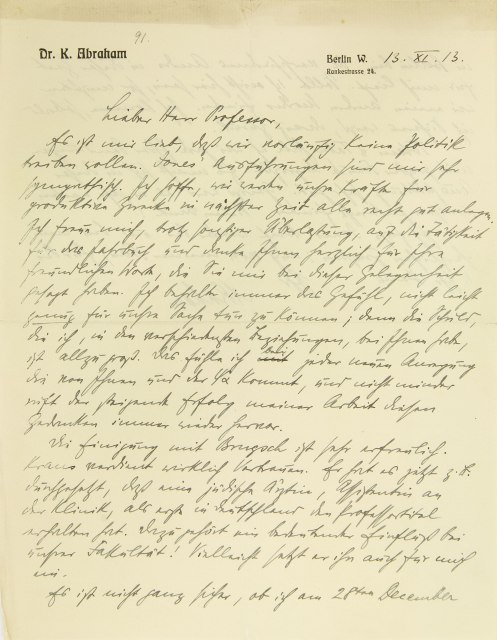 91.
Dr. K. Abraham
Berlin W. 13. XI. 13.
Rankestrasse 24.
Lieber Herr Professor,
Es ist mir lieb, daß wir vorläufig keine Politik
treiben wollen. Jones' Ausführungen sind mir sehr
sympathisch. Ich hoffe, wir werden unsre Kräfte für
produktive Zwecke in nächster Zeit alle recht gut anlegen.
Ich freue mich, trotz sonstiger Überlastung, auf die Tätigkeit
für das Jahrbuch und danke Ihnen herzlich für Ihre
freundlichen Worte, die Sie mir bei dieser Gelegenheit
gesagt haben. Ich behalte immer das Gefühl, nicht leicht
genug für unsre Sache tun zu können; denn die Schuld,
die ich, in den verschiedensten Beziehungen, bei Ihnen habe,
ist allzu groß. Das fühle ich bei jeder neuen Anregung
die von Ihnen und der ΨA kommt, und nicht minder
ruft der steigende Erfolg meiner Arbeit diesen
Gedanken immer wieder hervor.
Die Einigung mit Brugsch ist sehr erfreulich.
Kraus verdient wirklich Vertrauen. Er hat es jetzt z. B.
durchgesetzt, daß eine jüdische Ärztin, Assistentin an
der Klinik, als erste in Deutschland den Professortitel
erhalten hat. Dazu gehört ein bedeutender Einfluß bei
unsrer Fakultät! Vielleicht setzt er ihn auch für mich
ein.
Es ist nicht ganz sicher, ob ich am 28ten Dezember